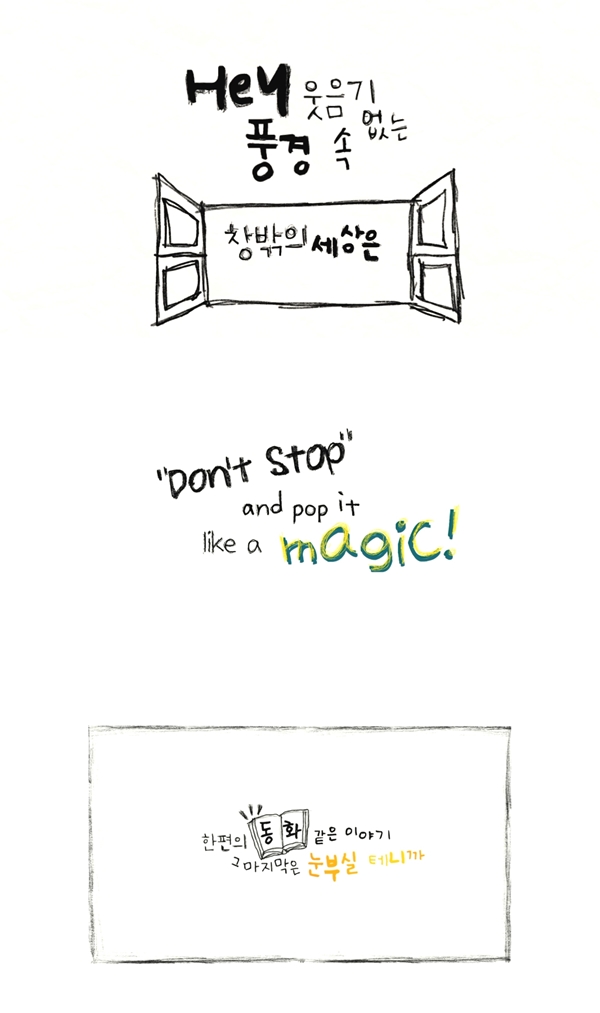 Hey 웃음기 없는
풍경 속
창밖의 세상은
"Don't stop"
and pop it
like a magic!
한편의 동화 같은 이야기
그 마지막은 눈부실 테니까